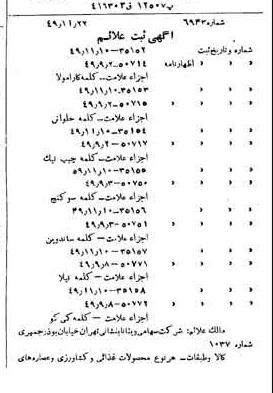 پ ۱۲۵۰۷ ف ۴۱۶۳۰۳
شماره ۶۹۴۳ ۴۹ر۱۱ر۲۲
آگهی ثبت علائم
شماره و تاریخ ثبت ۳۵۱۵۲-۴۹ر۱۱ر۱۰
» » » اظهارنامه ۵۰۷۱۴-۴۹ر۹ر۲
اجزاء علامت- کلمه کارامولا
» » » ۳۵۱۵۳-۴۹ر۱۱ر۱۰
» » » » ۵۰۷۱۵-۴۹ر۹ر۲
اجزاء علامت- کلمه حلوانی
» » » ۳۵۱۵۴-۴۹ر۱۱ر۱۰
» » » » ۵۰۷۱۷-۴۹ر۹ر۲
اجزاء علامت- کلمه چیپ نیک
» » » ۳۵۱۵۵-۵۹ر۱۱ر۱۰
» » » » ۵۰۷۵۰-۴۹ر۹ر۳
اجزاء علامت- کلمه سوکنج
» » » ۳۵۱۵۶-۴۹ر۱۱ر۱۰
» » » » ۵۰۷۵۱-۴۹ر۹ر۳
اجزاء علامت- کلمه ساندوین
» » » ۳۵۱۵۷-۴۹ر۱۱ر۱۰
» » » » ۵۰۷۷۱-۴۹ر۹ر۸
اجزاء علامت- کلمه تیلا
» » » ۳۵۱۵۸-۴۹ر۱۱ر۱۰
» » » » ۵۰۷۷۲-۴۹ر۹ر۸
اجزاء علامت- کلمه کی کو
مالک علائم: شرکت سهامی ویتانا بنشانی تهران خیابان بوذرجمهری
شماره ۱۰۳۷
کالا وطبقات- هرنوع محصولات غذائی و کشاورزی وعصاره‌های